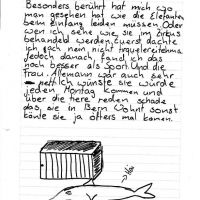 Besonders berührt hat mich wo
man gesehen hat wie die Elefanten
beim Einfang leiden müssen. Oder
wen ich sehe wie sie im Zirkus
behandeld werden. Zuerst dachte
ich och nein nicht
jedoch danach, fand ich das
noch besser als Sport. Und die
Frau. Allemann war auch sehr
nett. Ich wünste sie würde
jeden Montag kommen und
über die tiere reden schade
das, sie in Bern Wohnt sonst
könte sie ja öfters mal komen.